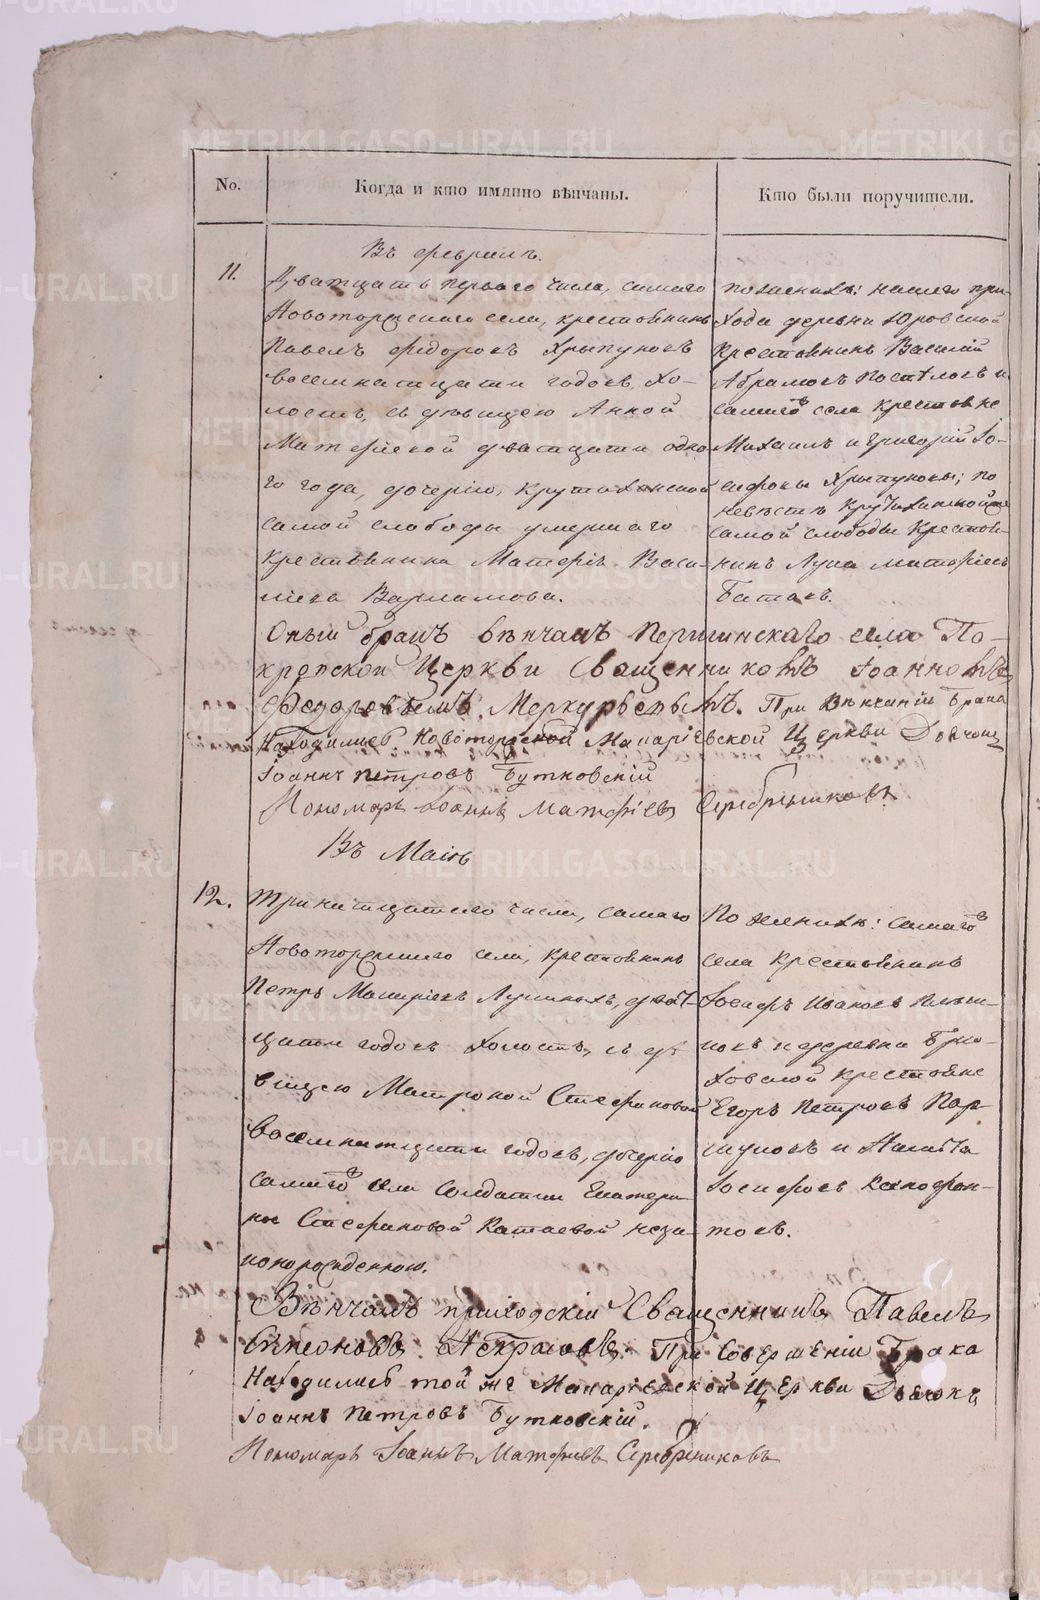 No.
Когда и кто имянно вѣнчаны.
Кто были поручители.
Въ февралѣ.
11.
Дватцать перваго числа, самаго
Новоторжскаго села, крестьянинъ
Павелъ Федоровъ Хрыпуновъ
восемнатцати годовъ, хо-
лостъ, съ дѣвицею Анной
Матфѣевой дватцати одно-
го года, дочерію, Крутихинской
самой слободы умершаго
крестьянина Матфѣя Васи-
льева Варламова.
по женихѣ: нашего при-
хода деревни Юровской
крестьянинъ Василій
Абрамовъ Поспѣловъ и
самаго села крестьяне
Михаилъ и Григорій Іо-
сифовы Хрыпуновы; по
невѣстѣ Крутихинской же
самой слободы крестья-
нинъ Лука Матфѣевъ
Батаев.
Оный бракъ вѣнчалъ села По-
кровской Церкви Священникъ Іоаннъ
Федоровъ Меркурьевъ. При вѣнчаніи брака
Находились Новоторжской Макаріевской Церкви Дьячокъ
Іоаннъ Петровъ Бутковскій
Пономарь Іоаннъ Матфіевъ Серебрениковъ
Въ Маіѣ
12.
Тринатцатаго числа, самаго
Новоторжскаго села, крестьянинъ
Петръ Макаріевъ Лушниковъ, дват-
цати годовъ холостъ, съ дѣ-
вицею Матроной Стефановой
восемнатцати годовъ, дочерію
самаго села солдатки Екатери-
ны Стефановой Катаевой неза-
конорожденною.
По женихѣ: самаго
села крестьянинъ
Іосифъ Ивановъ
и деревни Брю-
ховской крестьяне
Егоръ Петровъ Пор-
шуновъ и Никита
Іосифовъ Ксенофон-
товъ.
Вѣнчалъ приходскій Священникъ Павелъ
Симеоновъ Некрасовъ. При совершеніи Брака
Находились той же Макаріевской Церкви Дьячокъ
Іоаннъ Петровъ Бутковскій.
Пономарь Іоаннъ Матфіевъ Серебрениковъ
METRIKI.GASO-URAL.RU